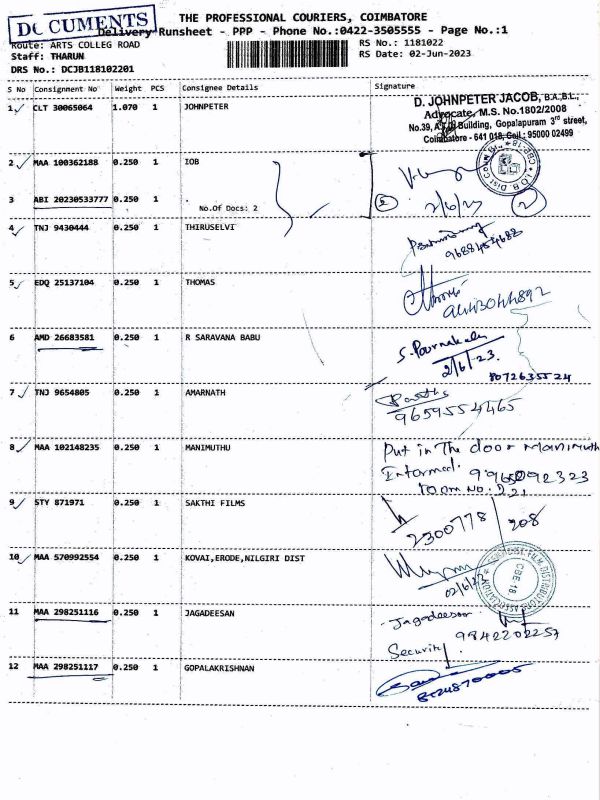 DOCUMENTS
THE PROFESSIONAL COURIERS, COIMBATORE
Delivery Runsheet - PPP - Phone No.:0422-3505555 - Page No.:1
Route: ARTS COLLEG ROAD
RS No.: 1181022
Staff: THARUN
RS Date: 02-Jun-2023
DRS No.: DCJB118102201
S No Consignment No Weight PCS Consignee Details Signature
1 CLT 30065064 1.070 1 JOHNPETER
D. JOHNPETER JACOB, B.A.,B.L.,
Advocate, M.S. No.1802/2008
No.39, Building, Gopalapuram 3rd street,
Coimbatore - 641 018, Cell : 95000 02499
2 MAA 100362188 0.250 1 IOB
3 ABI 20230533777 0.250 1 .
No.Of Docs: 2
2/6/23
4 TNJ 9430444 0.250 1 THIRUSELVI
9688454688
5 EDQ 25137104 0.250 1 THOMAS
6 AMD 26683581 0.250 1 R SARAVANA BABU
S. Pournakala
2/6/23.
8072635524
7 TNJ 9654805 0.250 1 AMARNATH
9659554465
8 MAA 102148235 0.250 1 MANIMUTHU
Put in The door Manimuth
Informed.
room No. 221
9 STY 871971 0.250 1 SAKTHI FILMS
2300778 / 208
10 MAA 570992554 0.250 1 KOVAI,ERODE,NILGIRI DIST
02/6/23
CBE-18
11 MAA 298251116 0.250 1 JAGADEESAN
- Jagadeesan
Security
9842202257
12 MAA 298251117 0.250 1 GOPALAKRISHNAN